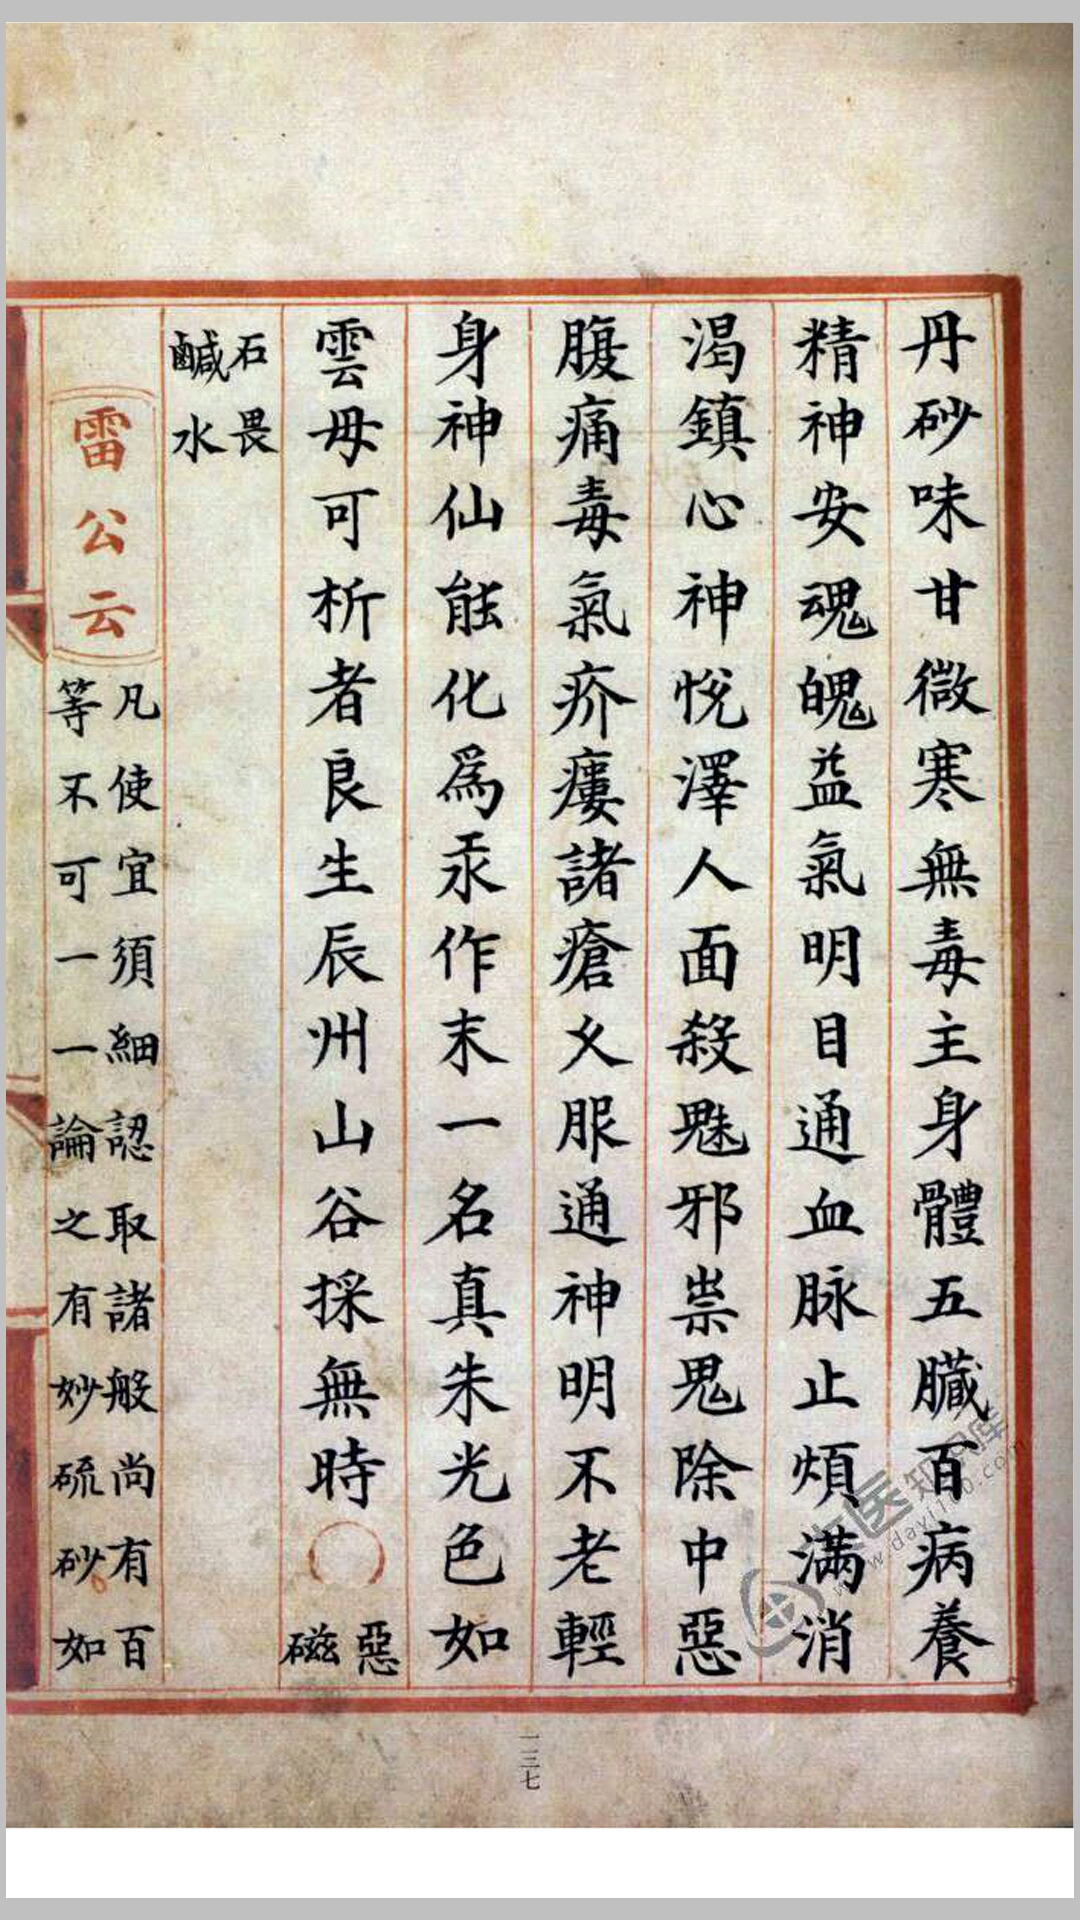 丹砂味甘微寒無毒主身體五臟百病養
精神安魂魄益氣明目通血脉止煩滿消
渴鎮心神悅澤人面殺魅邪祟鬼除中惡
腹痛毒氣疥瘻諸瘡久服通神明不老輕
身神仙能化爲汞作末一名真朱光色如
雲母可析者良生辰州山谷採無時〇
惡
磁
石畏
鹹水
雷公云
凡使宜須細認取諸般尚有百
等不可一一論之有妙硫砂如
一三七
大医知识库
www.dayi100.com